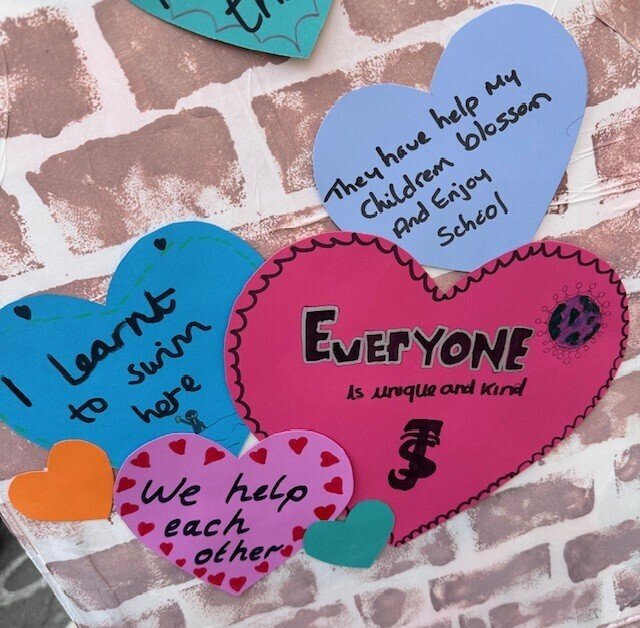 They have help my
Childrem blossom
And Enjoy
School
I learnt
to swim
here
EVERYONE
Is unique and kind
We help
each
other